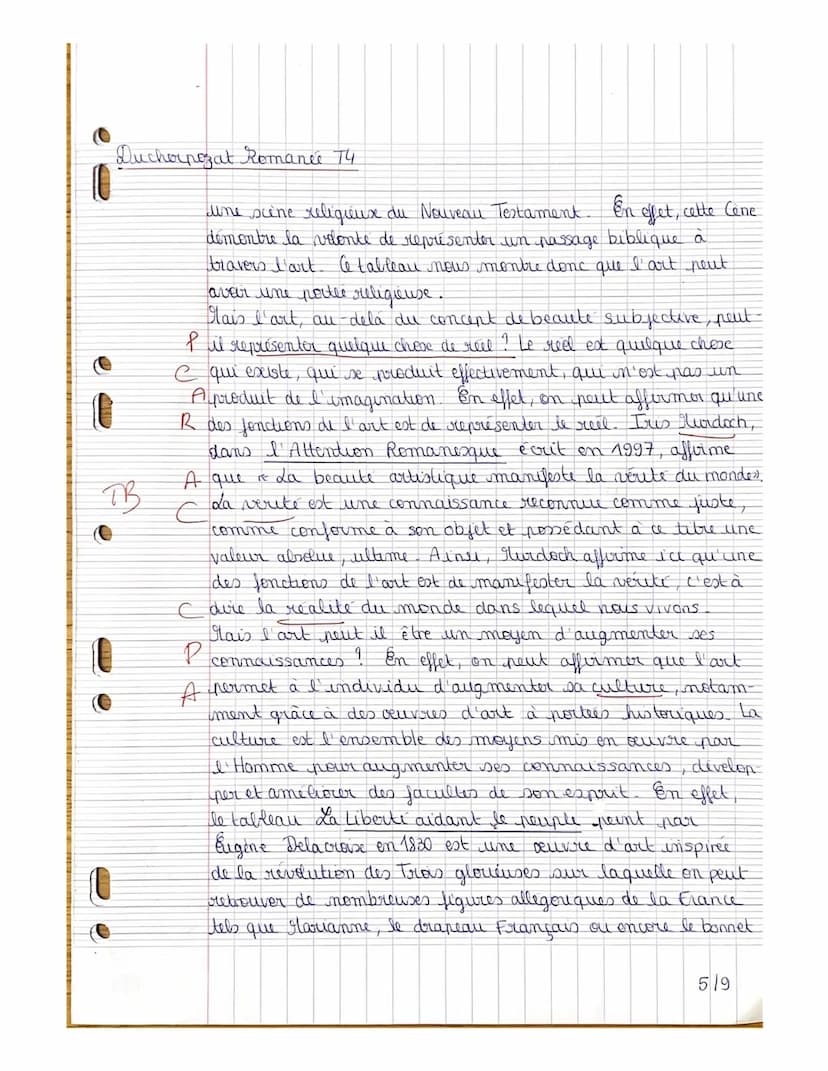 Ducherpozat Romanée T4
une scène religieux du Nouveau Testament. En effet, cette Cène
démontre la volonté de représenter un passage biblique à
travers l'art. Ce tableau nous montre donc que l'art peut
avoir une portée religieuse.
Mais l'art, au-delà du concept de beauté subjective, peut-
P il représenter quelque chose de réel ? Le réel est quelque chose
C qui existe, qui se produit effectivement, qui n'est pas un
A produit de l'imagination. En effet, on peut affirmer qu'une
R des fonctions de l'art est de représenter le réel. Iris Murdoch,
dans l'Attention Romanesque écrit en 1997, affirme
A que « La beauté artistique manifeste la vérité du monde».
TB C La vérité est une connaissance reconnue comme juste,
comme conforme à son objet et possédant à ce titre une
valeur absolue, ultime. Ainsi, Murdoch affirme ici qu'une
des fonctions de l'art est de manifester la vérité, c'est à
C dire la réalité du monde dans lequel nous vivons.
Mais l'art peut il être un moyen d'augmenter ses
P connaissances ? En effet, on peut affirmer que l'art
A permet à l'individu d'augmenter sa culture, notam-
ment grâce à des œuvres d'art à portées historiques. La
culture est l'ensemble des moyens mis en œuvre par
l'Homme pour augmenter ses connaissances, dévelop-
per et améliorer des facultés de son esprit. En effet,
le tableau La Liberté aidant le peuple peint par
Eugène Delacroix en 1830 est une œuvre d'art inspirée
de la révolution des Trois glorieuses sur laquelle on peut
retrouver de nombreuses figures allégoriques de la France
tels que Marianne, le drapeau Français ou encore le bonnet
5/9